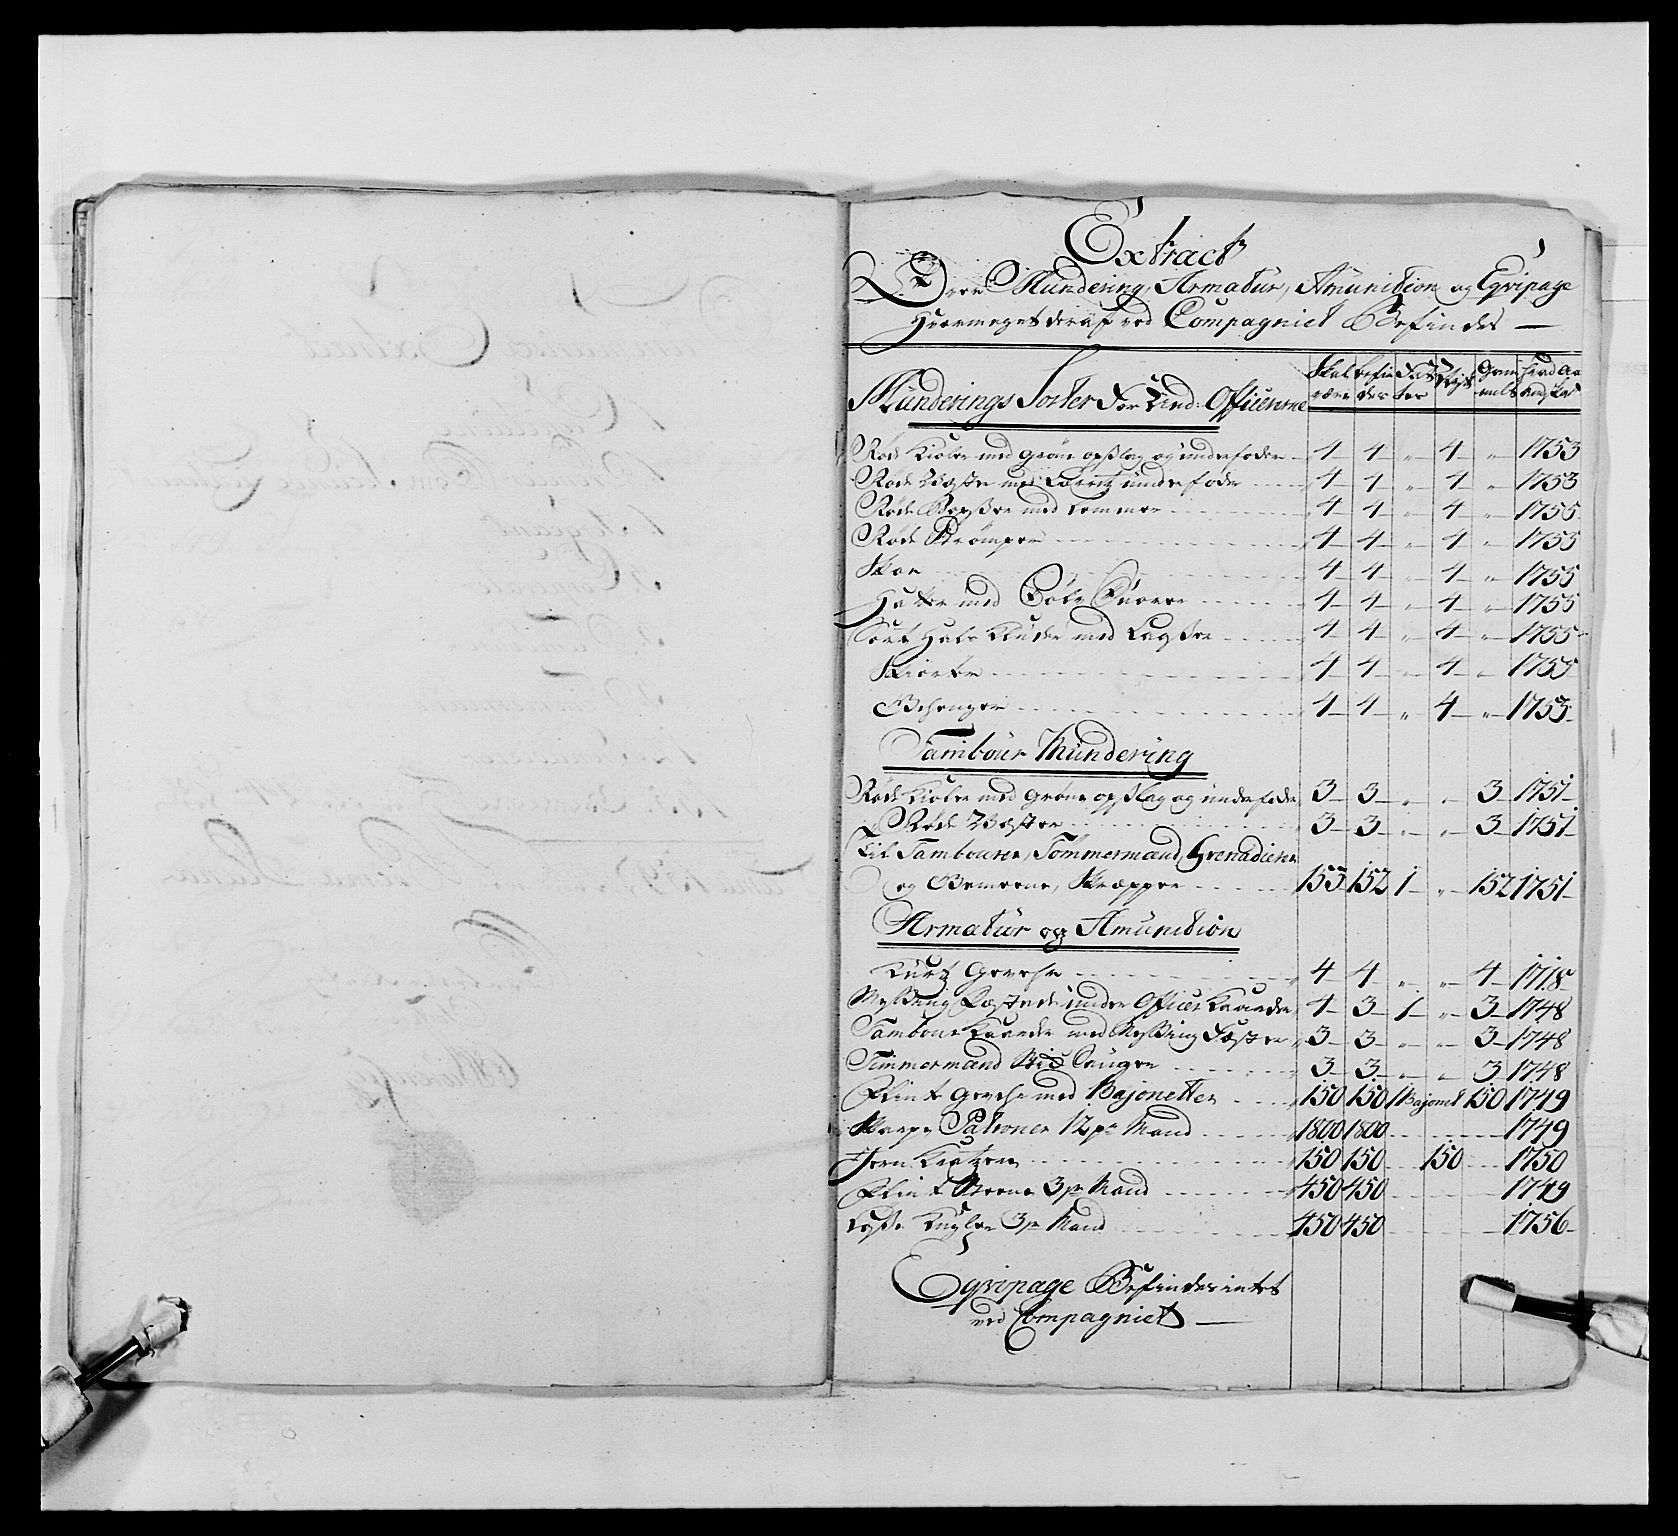 Extract
Over Mundering, Armatur, Amunition og Eqvipage
Hvormeget deraf ved Compagniet Befindes —
Munderings Sorter For Und: Officererne | Skal være | befindes | Fattes | Nyt | Gammelt | hvad Aar
Røde Kioler med Grøne opslag og underfoder | 4 | 4 | " | 4 | " | 1753
Røde Væster med underfoder | 4 | 4 | " | 4 | " | 1753
Røde Boxser med Lommer | 4 | 4 | " | 4 | " | 1755
Røde Strømper | 4 | 4 | " | 4 | " | 1755
Skoe | 4 | 4 | " | 4 | " | 1755
Hatter med Sølv Snorer | 4 | 4 | " | 4 | " | 1755
Sort Hals Kluder med | 4 | 4 | " | 4 | " | 1755
Skiorter | 4 | 4 | " | 4 | " | 1755
Gehenger | 4 | 4 | " | 4 | " | 1753
Tambour Mundering
Røde Kioler med Grøne opslag og underfoder | 3 | 3 | " | " | 3 | 1751
Røde Væster | 3 | 3 | " | " | 3 | 1751
Til Tambourer, Tømmermænd, Grenadierer
og Gemeene, Skræpper | 153 | 152 | 1 | " | 152 | 1751
Armatur og Amunition
Kurtz Gevehr | 4 | 4 | " | " | 4 | 1718
Messing Fæstede under Officer Kaarder | 4 | 3 | 1 | " | 3 | 1748
Tambour Kaarder med Messing Fæster | 3 | 3 | " | " | 3 | 1748
Timmermand | 3 | 3 | " | " | 3 | 1748
Flint Gevehr med Bajonetter | 150 | 150 | 1 Bajonet | 150 | 1749
Skarpe Patroner 12 pr Mand | 1800 | 1800 | 1749
Jern Kratzere | 150 | 150 | 150 | 1750
Flint Steene 3 pr Mand | 450 | 450 | 1749
Løse Kugler 3 pr Mand | 450 | 450 | 1756
Eqvipage Befindes intet
ved Compagniet —